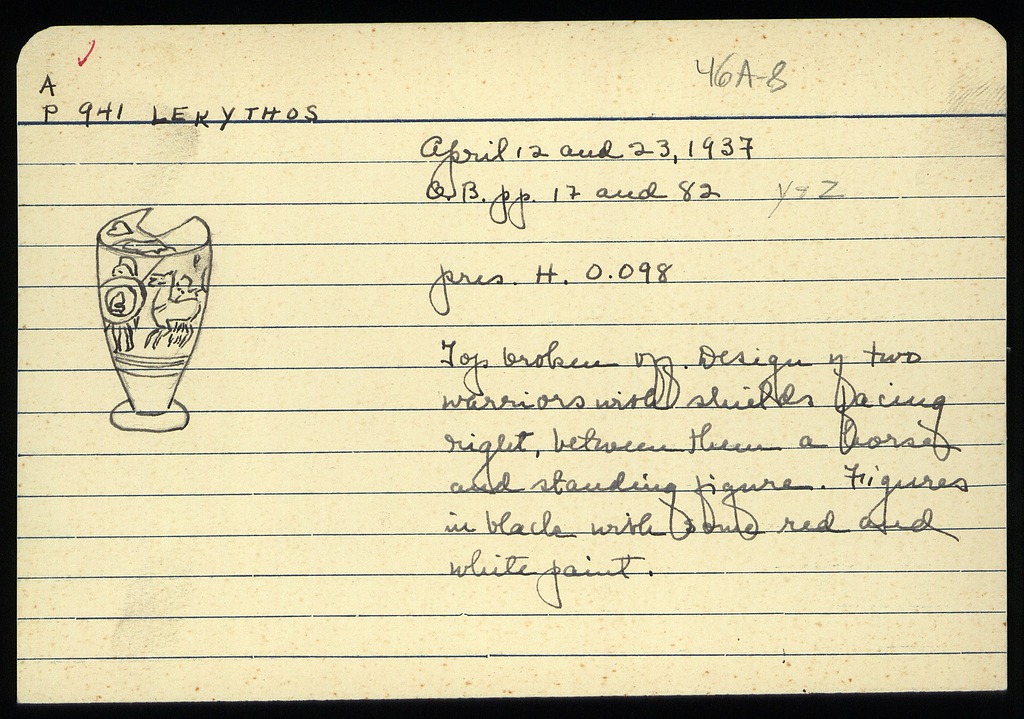 46A-8
A
P 941 LEKYTHOS
April 12 and 23, 1937
B. pp. 17 and 82 Y+Z
pres. H. 0.098
Top broken off. Design of two
warriors with shields facing
right, between them a horse
and standing figure. Figures
in black with some red and
white paint.